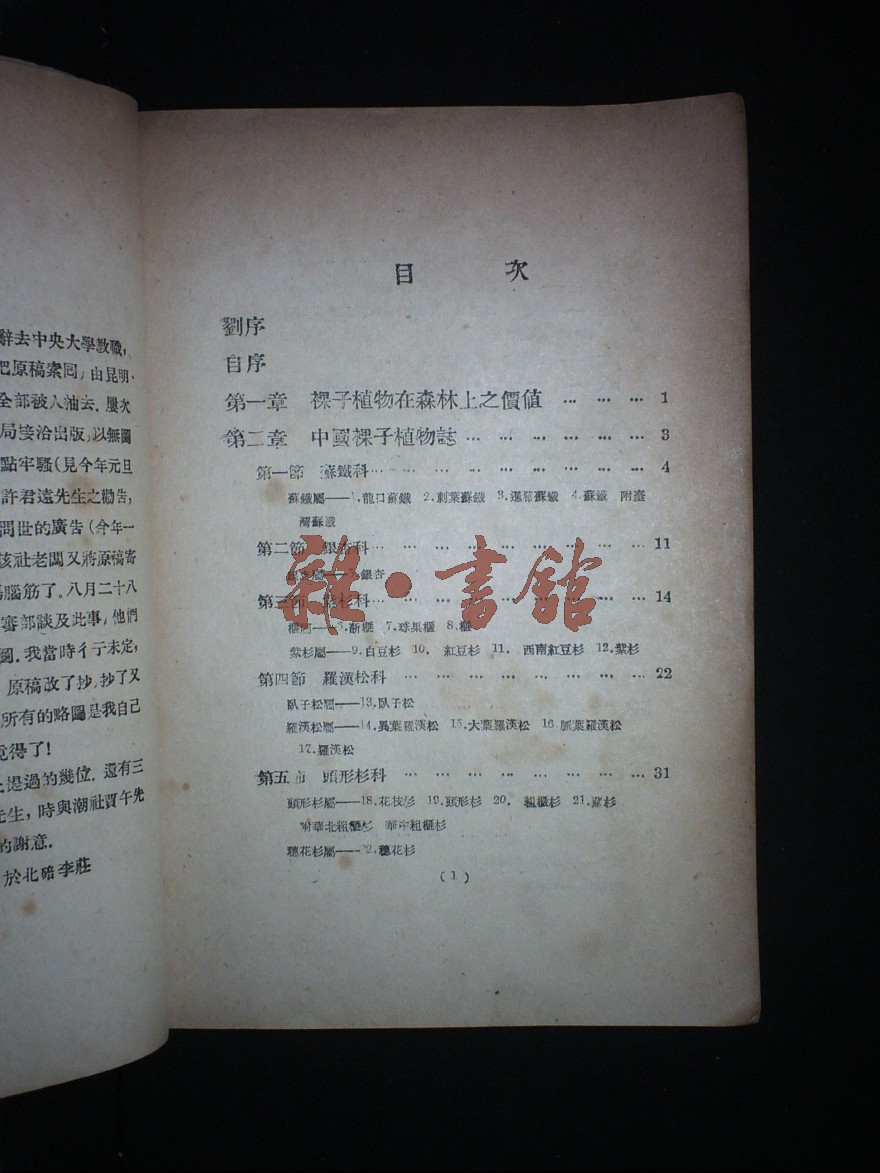 辭去中央大學教職,
把原稿索囘,由昆明,
全部被人抽去.屢次
局接洽出版,以無圖
點牢騷(見今年元旦
許君遠先生之勸告,
問世的廣告(今年一
該社老闆又將原稿寄
腦筋了.八月二十八
審部談及此事,他們
圖.我當時行示未定,
原稿改了抄,抄了又
所有的略圖是我自己
竟得了!
上提過的幾位.還有三
先生,時與潮社賈午先
的謝意.
於北碚李莊
目 次
劉序
自序
第一章 裸子植物在森林上之價值 … … … 1
第二章 中國裸子植物誌 … … … … … 3
第一節 蘇鐵科 … … … … … … … … 4
蘇鐵屬——1.龍口蘇鐵 2.刺葉蘇鐵 3.暹羅蘇鐵 4.蘇鐵 附臺
灣蘇鐵
第二節 銀杏科 … … … … … … … 11
銀杏
第三節 杉科 … … … … … … … 14
榧屬—— 榧 7.球果榧 8.榧
紫杉屬——9.白豆杉 10. 紅豆杉 11. 西南紅豆杉 12.紫杉
第四節 羅漢松科 … … … … … … … … 22
臥子松屬——13.臥子松
羅漢松屬——14.異葉羅漢松 15.大葉羅漢松 16.脈葉羅漢松
17.羅漢松
第五 頭形杉科 … … … … … … … 31
頭形杉屬——18.花枝杉 19.頭形杉 20. 粗榧杉 21.杉
附華北粗榧杉 華中粗榧杉
穗花杉屬—— 2.穗花杉
(1)
雜·書館